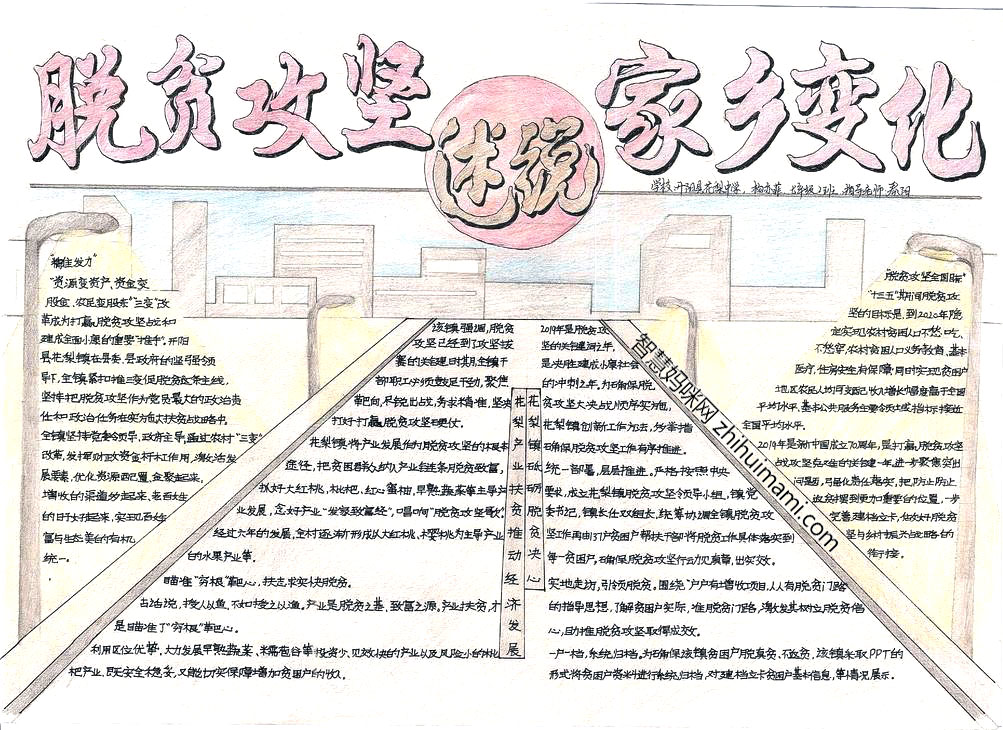 脱贫攻坚
述说
家乡变化
学校:开阳县花梨中学
指导老师
"精准发力"
"资源变资产、资金变
股金、农民变股东""三变"改
革成为打赢脱贫攻坚战和
建成全面小康的重要"推手"。开阳
县花梨镇在县委、县政府的坚强领
导下,全镇紧扣推三变促脱贫政策主线,
坚持把脱贫攻坚作为党员最大的政治责
任和政治任务在实施大扶贫战略中,
全镇坚持党委领导,政府主导,通过农村"三变"
改革,发挥财政资金杠杆作用,激活发
展要素,优化资源配置,金聚起来,
增收的渠道多起来,老百姓
的日子好起来,实现百姓
富与生态美的有机
统一。
该镇强调,脱贫
攻坚已经到了攻坚拔
寨的关键时期,全镇干
部职工必须鼓足干劲,聚焦
靶向,尽锐出战,务求精准,坚决
打好打赢脱贫攻坚硬仗。
花梨镇将产业发展作为脱贫攻坚的根本
途径,把贫困群众纳入产业链条脱贫致富,
抓好大红桃、枇杷、红心蜜柚、早熟蔬菜等主导产
业发展,念好产业"发家致富经",唱响"脱贫攻坚曲"。
经过六年的发展,全村逐渐形成以大红桃、樱桃为主导产业
的水果产业带。
瞄准"穷根"靶心,扶志求实快脱贫。
古话说,授人以鱼,不如授之以渔。产业是脱贫之基、致富之源,产业扶贫,才
是瞄准了"穷根"靶心。
利用区位优势,大力发展早熟蔬菜、糯苞谷等投资少、见效快的产业以及风险小的林
花梨产业扶贫推动经济发展
花梨镇砥砺脱贫决心
2019年是脱贫攻
坚的关键之年,
是决胜建成小康社会
的冲刺之年,为确保脱
贫攻坚大决战顺序实施,
花梨镇创新工作方法,多举措
确保脱贫攻坚工作有序推进。
统一部署,层层推进。严格按照中央
要求,成立花梨镇脱贫攻坚领导小组,镇党
委书记、镇长任双组长,统筹协调全镇脱贫攻
坚工作具由引户贫困户帮扶干部将脱贫工作具体落实到
每一贫困户,确保脱贫攻坚行动见演章,出实效。
实地走访,引领脱贫。围绕"户户有增收项目、人人有脱贫门路"
的指导思想,了解贫困户实际,准脱贫门路,激发其树立脱贫信
心,助推脱贫攻坚取得成效。
一户一档,系统归档。为确保该镇贫困户脱真贫、不返贫,该镇采取PPT的
形式将贫困户资料进行系统归档,对建档立卡贫困户基本信息,等情况展示。
"脱贫攻坚全国际"
"十三五"期间脱贫攻
坚的目标是,到2020年稳
定实现农村贫困人口不愁吃、
不愁穿,农村贫困人口义务教育、基本
医疗、住房安全有保障;同时实现贫困
地区农民人均可支配收入增长幅度高于全国
平均水平、基本公共服务主要领域指标接近
全国平均水平。
2019年是新中国成立70周年,是打赢脱贫攻坚
战攻坚克难的关键一年,进一步聚焦突出
问题,
应贫摆到更加重要的位置,一步
完善建档立卡,
坚与乡村振兴战略的
衔接。
智慧妈咪网 zhihuimami.com